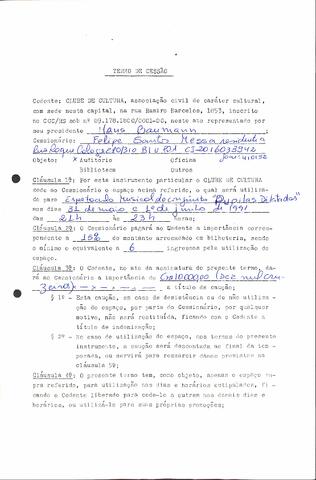 TERMO DE CESSÃO
Cedente: CLUBE DE CULTURA, associação civil de caráter cultural,
com sede nesta capital, na rua Ramiro Barcelos, 1853, inscrito
no CGC/MS sob nº 89.178.1800/0001-00, neste ato representado por
seu presidente Hans Baumann
Cessionário: Felipe Santos Messa residente a
Rua Roque Calage 10/310 Bl U P01 CI-2016033942
Objeto: X Auditório Oficina
Biblioteca Outros
Cláusula 1ª: Por este instrumento particular o CLUBE DE CULTURA
cede ao Cessionário o espaço acima referido, o qual será utiliza-
do para Espetáculo Musical do conjunto "Pupilas Dilatadas"
nos dias 31 de maio e 1º de junho de 1991
das 21h às 23h horas;
Cláusula 2ª: O Cessionário pagará ao Cedente a importância corres-
pondente a 15% do montante arrecadado em bilheteria, sendo
o mínimo o equivalente a 6 ingressos pela utilização do
espaço.
Cláusula 3ª: O Cedente, no ato da assinatura do presente termo, da-
rá ao Cessionário a importância de Cr$ 10.000,00 (Dez mil cru-
zeiros) -x-x-.-.-, a título de caução;
§ 1º - Esta caução, em caso de desistência ou de não utiliza-
ção do espaço, por parte do Cessionário, por qualquer
motivo, não será restituída, ficando com o Cedente a
título de indenização;
§ 2º - No caso de utilização do espaço, nos termos do presente
instrumento, a caução será descontada ao final da tem-
porada, ou servirá para ressarcir danos previstos na
cláusula 5ª;
Cláusula 4ª: O presente termo tem, como objeto, apenas o espaço su-
pra referido, para utilização nos dias e horários estipulados, fi-
cando o Cedente liberado para cedê-lo a outrem nos demais dias e
horários, ou utilizá-lo para suas próprias promoções;